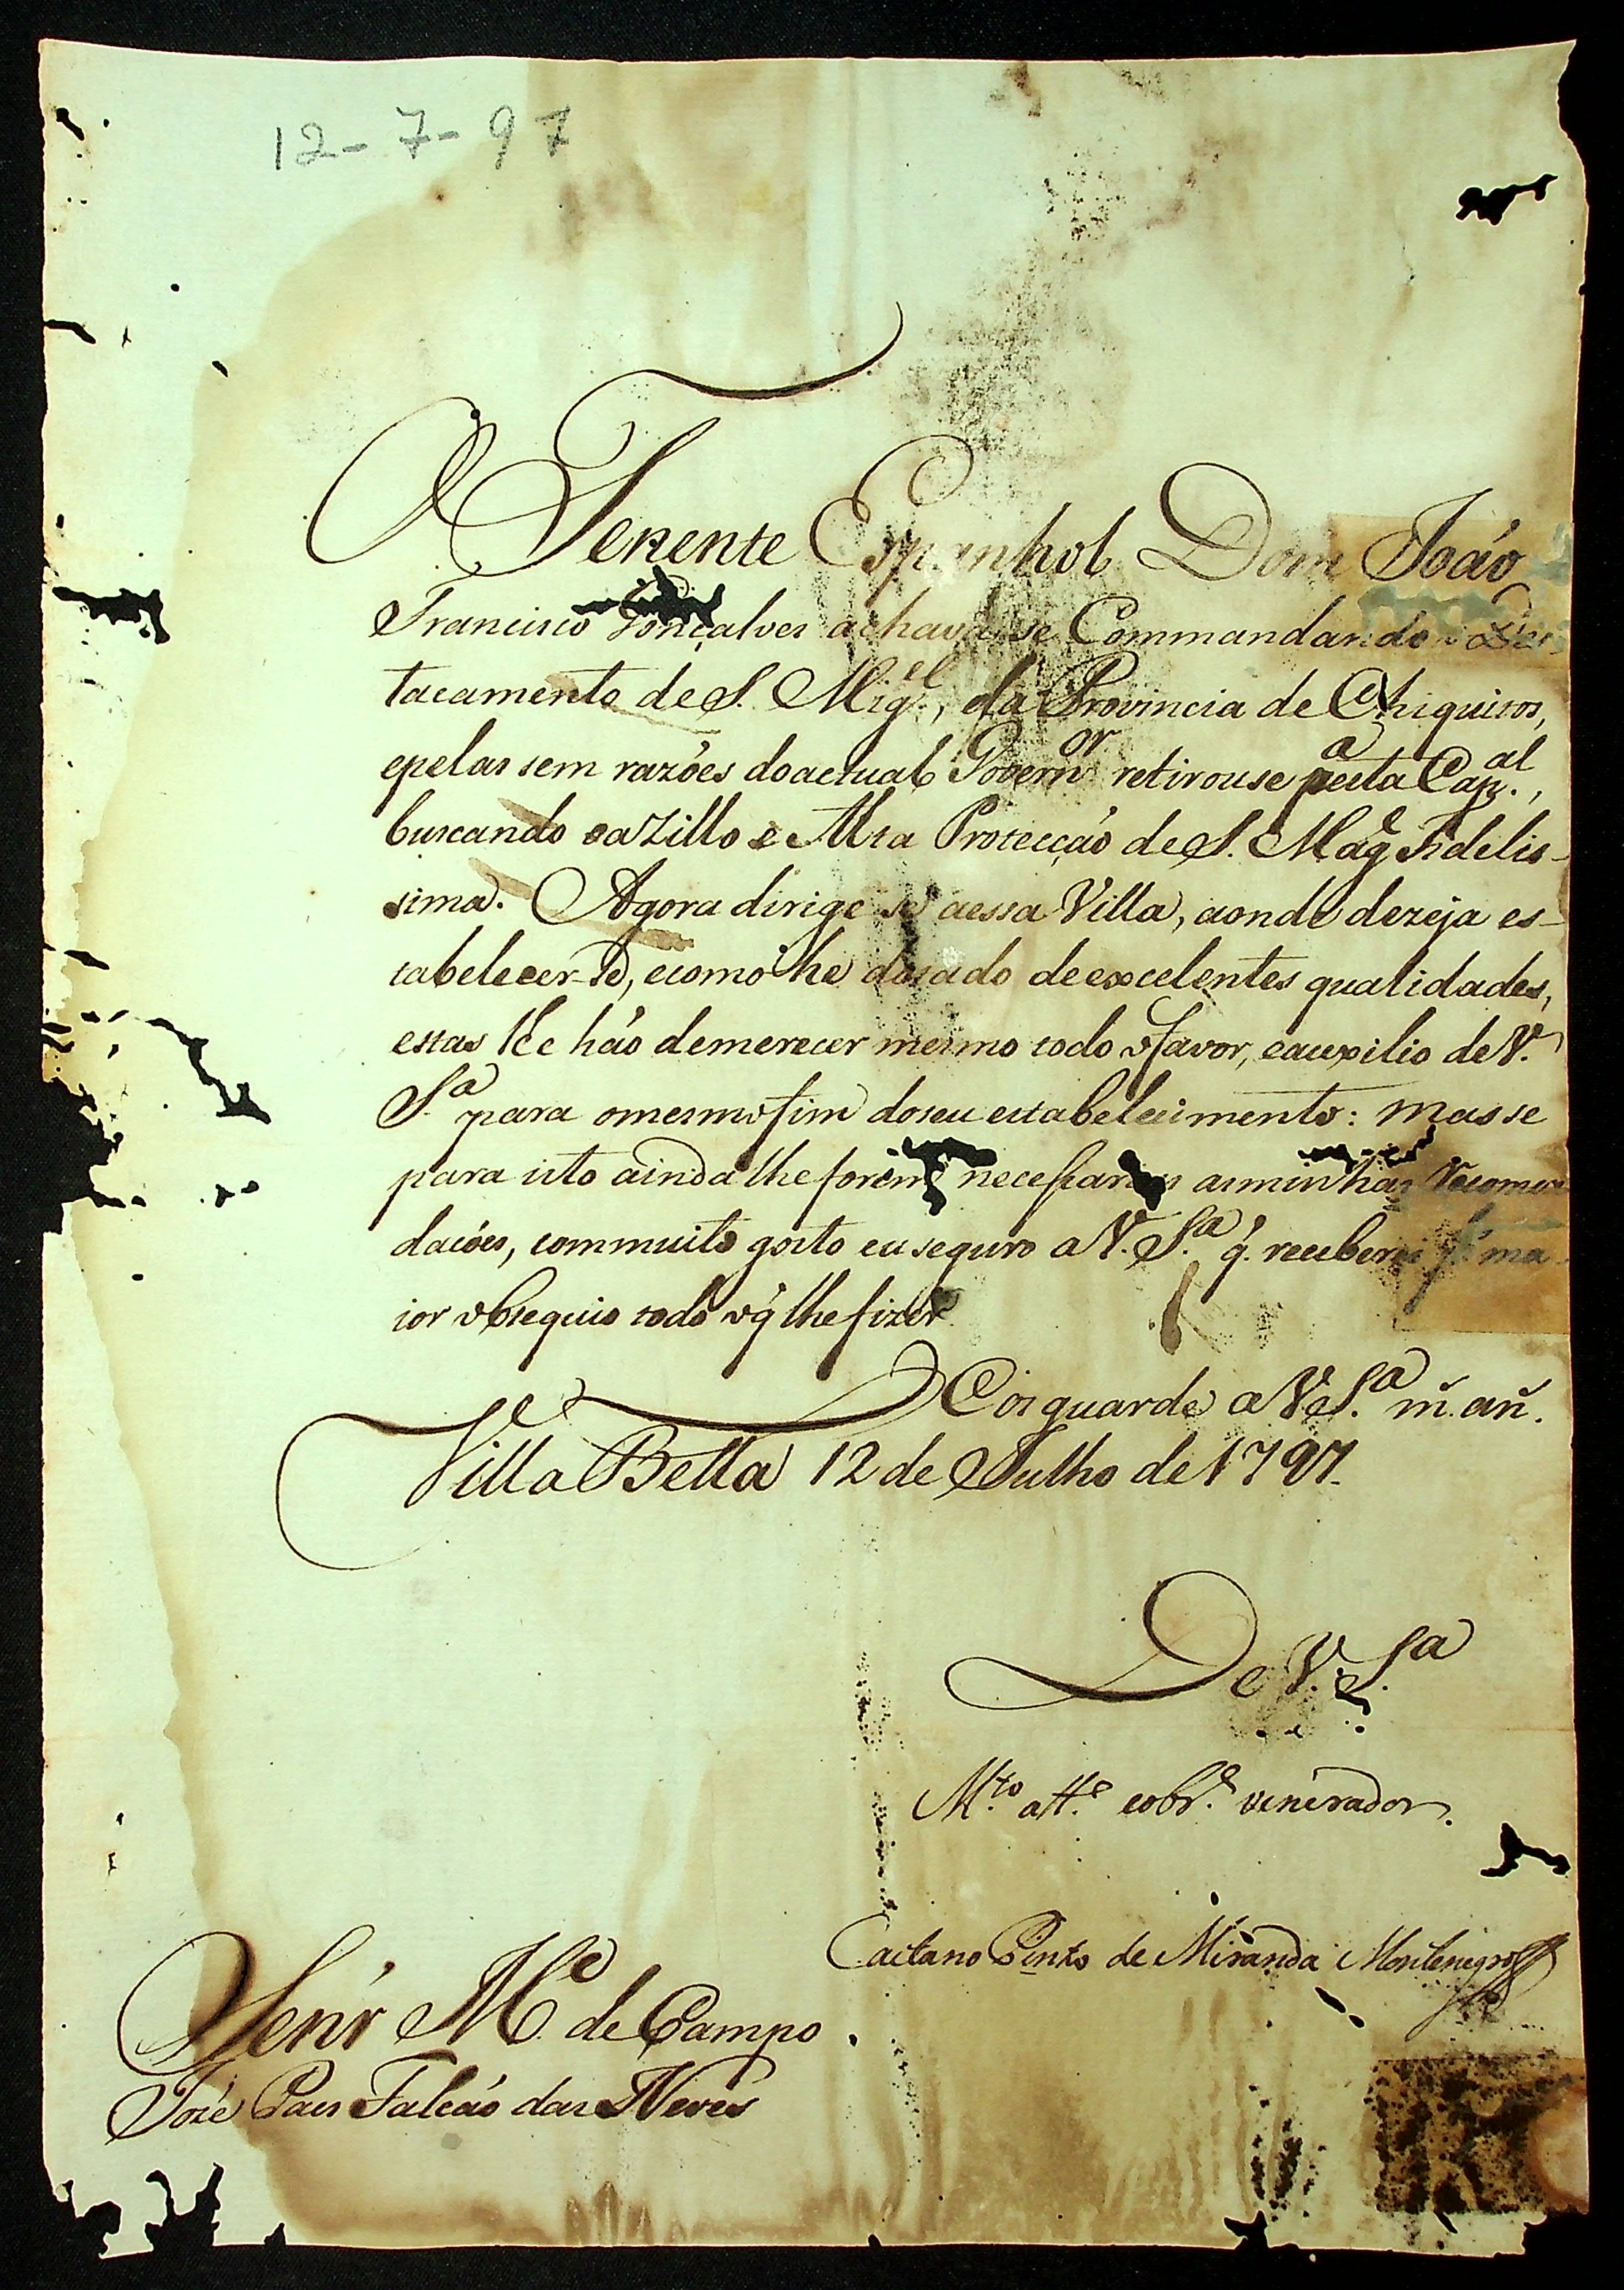 12-7-97
O Tenente Espanhol Dom João
Francisco Gonçalves achava se Commandando o Des
tacamento de S. Mig.el, da Provincia de Chiquitos,
epelas sem razões doactual Govern.or retirouse p.a esta Cap.al,
buscando oazillo e Alta Protecção de S. Mag.e Fidelis-
sima. Agora dirige se aessa Villa, aonde dezeja es-
tabelecer-se, ecomo he dotado deexcelentes qualidades,
estas lhe hão demerecer mesmo todo ofavor, eauxilio de V.
S.a para omesmofim doseu estabelecimento: mas se
para isto ainda lhe forem necessarias asminhas recomen
dações, commuito gosto eu seguro a V. S.a q̃. receberei p.r ma
ior obsequio todo oq̃ lhe fizer.
Deos guarde a V. S.a m̃. añ.
Villa Bella 12 de Julho de 1797.
De V. S.a
M.to att.e eobr.o venerador.
Caetano Pinto de Miranda Montenegro
Senr̃ M.e de Campo
José Paes Falcão das Neves